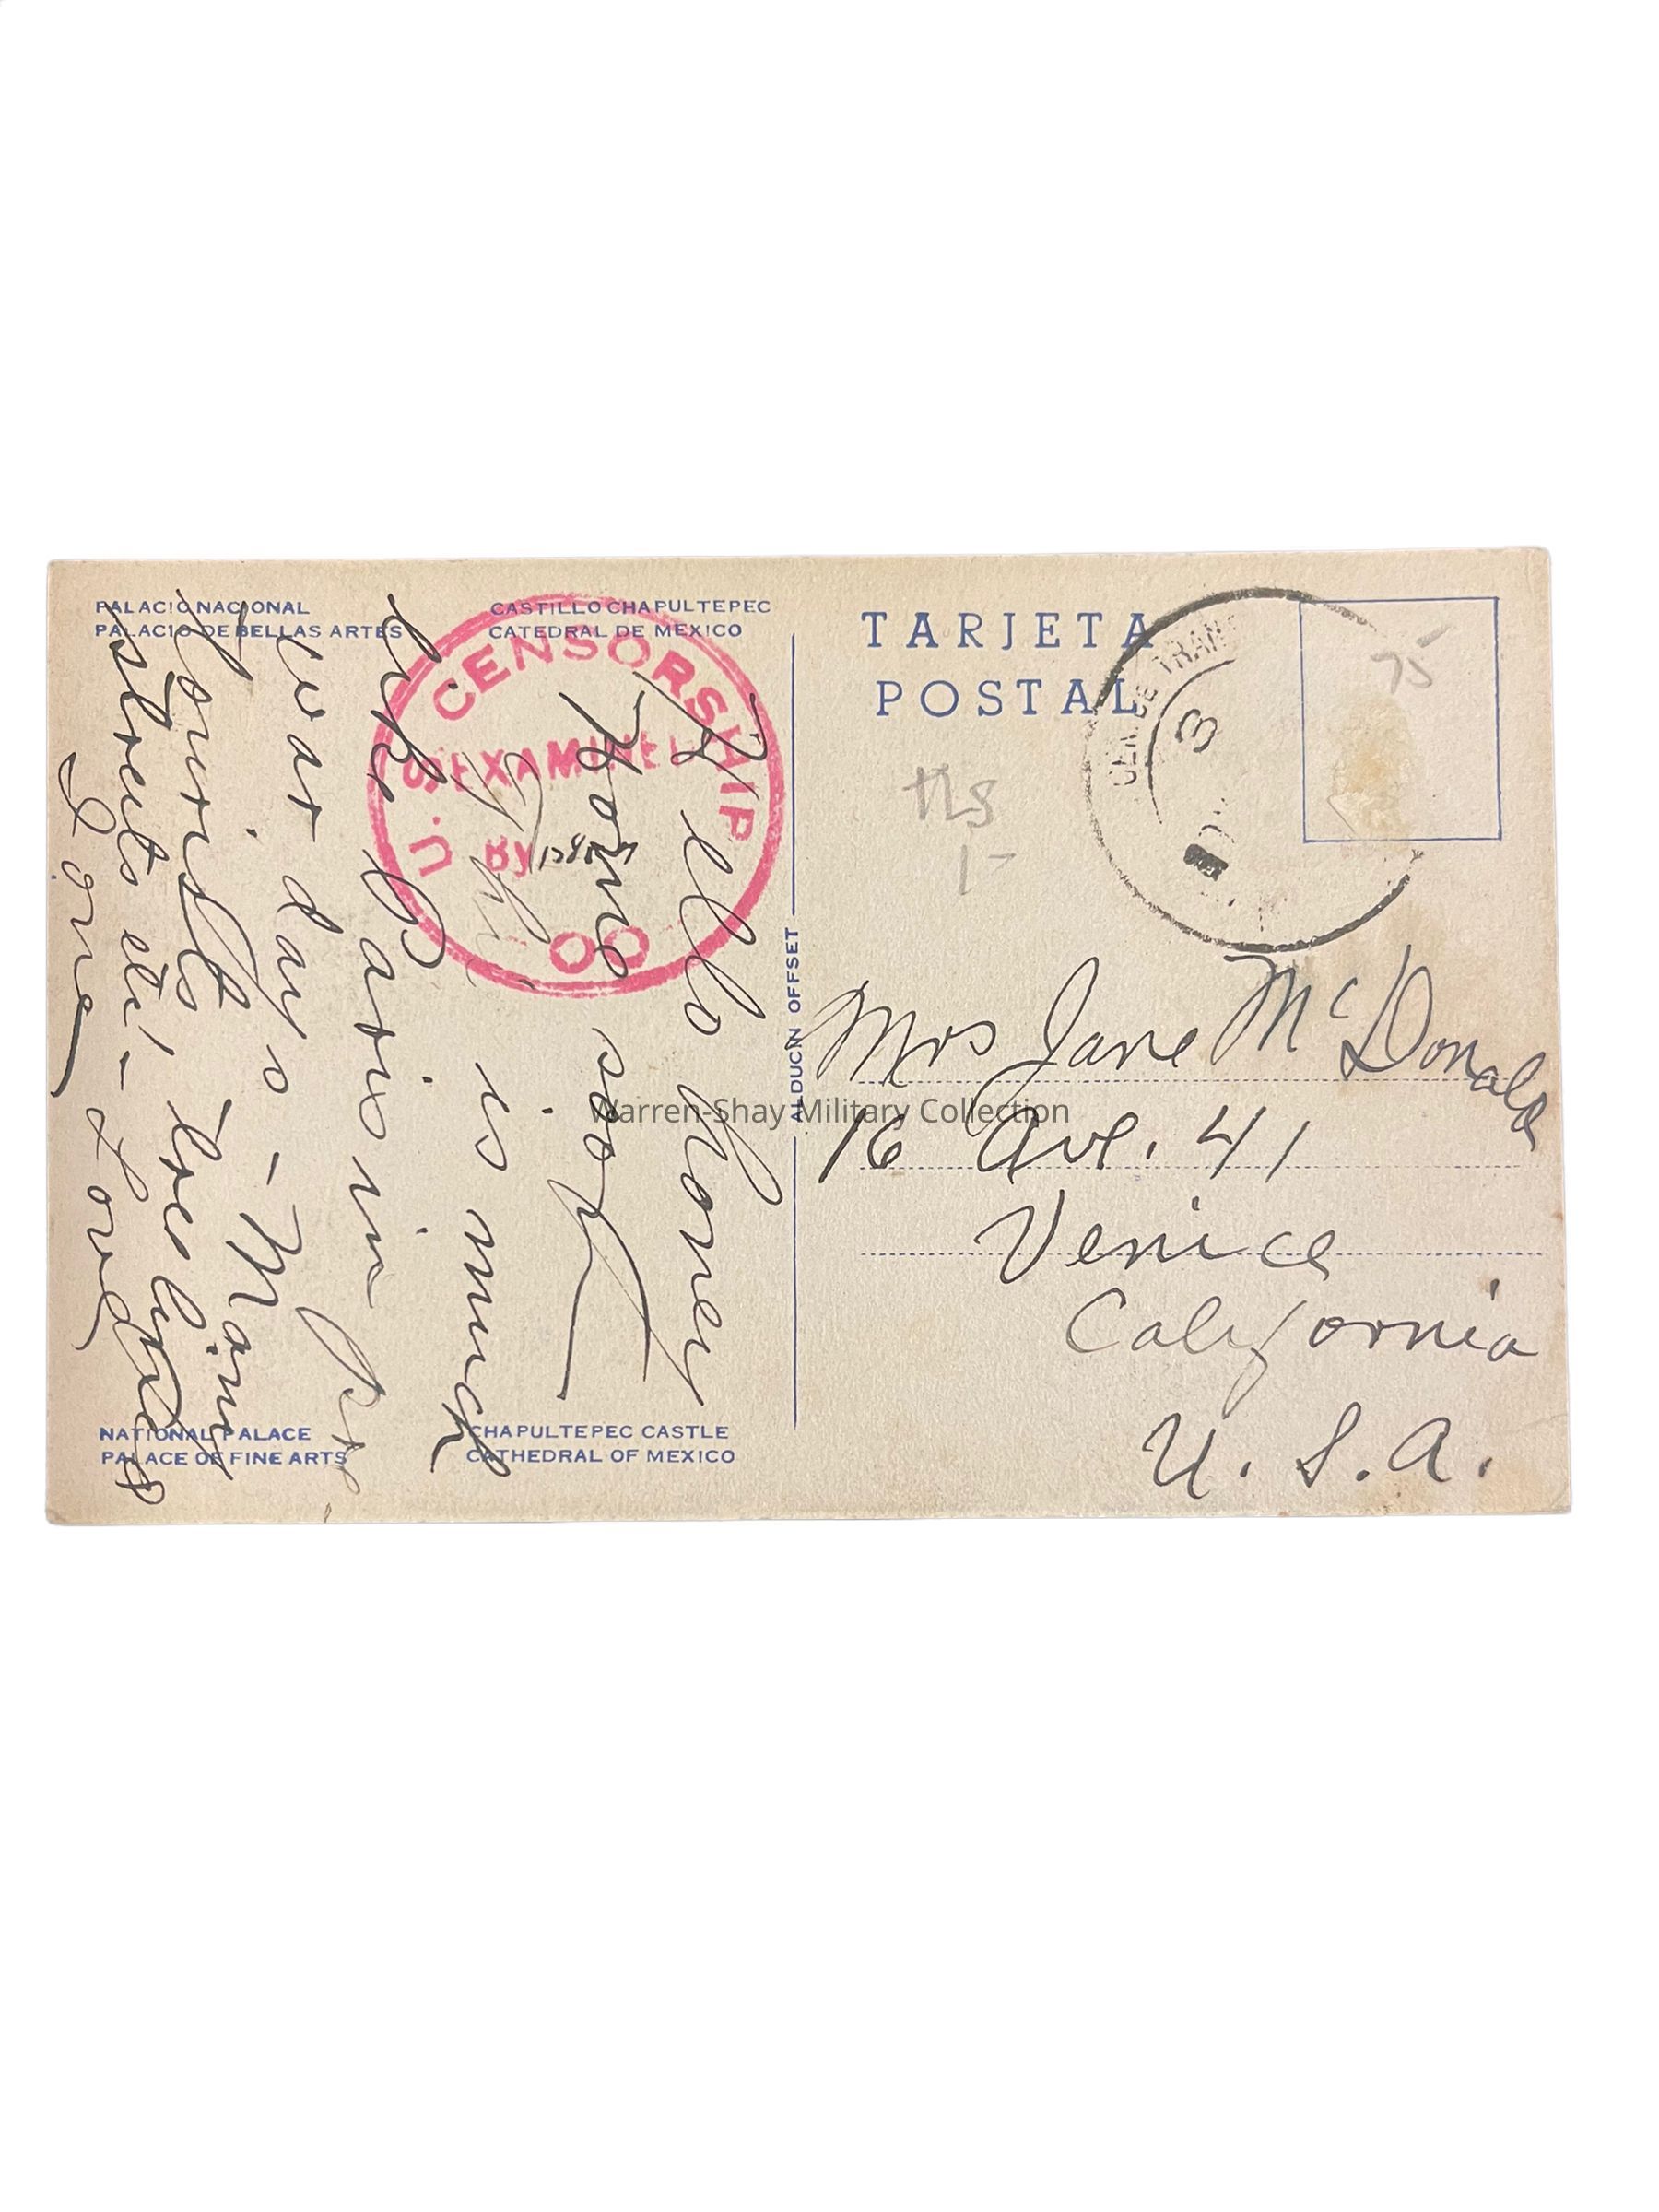 PALACIO NACIONAL
PALACIO DE BELLAS ARTES
CASTILLO CHAPULTEPEC
CATEDRAL DE MEXICO
U.S. CENSORSHIP
EXAMINED
BY
Hello Honey
Home soon
This is much
like Paris in pre
war days - Many
tourists
streets etc! - Loved
Lorne
NATIONAL PALACE
PALACE OF FINE ARTS
CHAPULTEPEC CASTLE
CATHEDRAL OF MEXICO
ALDUCIN OFFSET
TARJETA
POSTAL
3
75
1-
Mrs Jane McDonald
16 Ave. 41
Venice
California
U.S.A.
Warren-Shay Military Collection